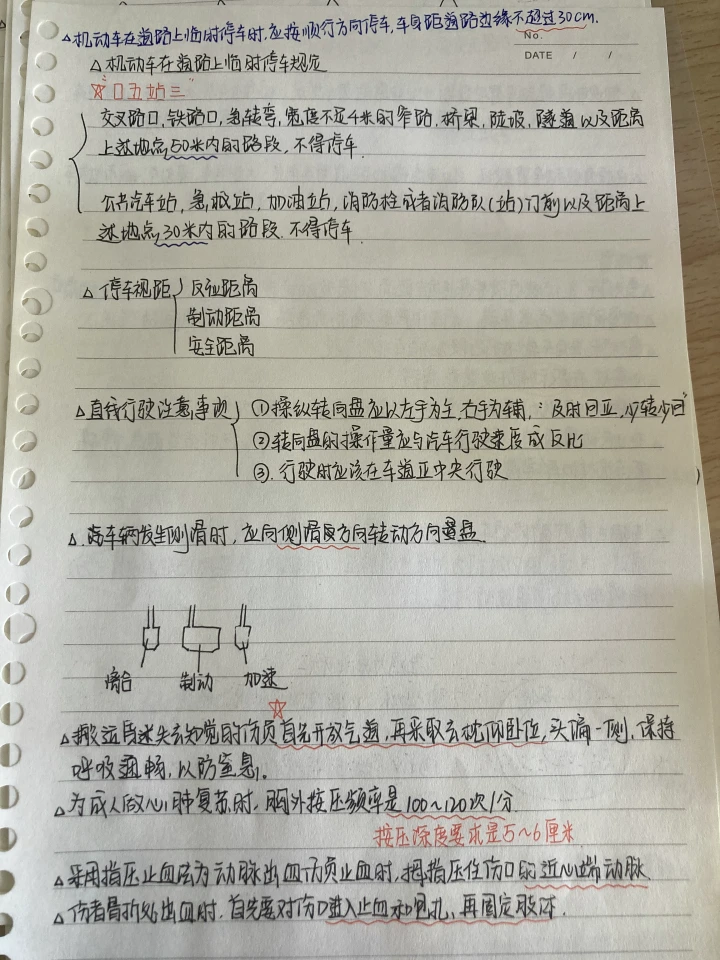 △机动车在道路上临时停车时,应按顺行方向停车,车身距道路边缘不超过30cm.
No.
DATE / /
△机动车在道路上临时停车规定
☆口五站三
交叉路口,铁路口,急转弯,宽度不足4米的窄路,桥梁,陡坡,隧道以及距离
上述地点50米内的路段,不得停车.
公共汽车站,急救站,加油站,消防栓或者消防队(站)门前以及距离上
述地点30米内的路段.不得停车
△停车视距 反应距离
制动距离
安全距离
△直线行驶注意事项 ①操纵转向盘应以左手为主,右手为辅,:及时回正,少转少回"
②转向盘的操作量应与汽车行驶速度成反比
③.行驶时应该在车道正中央行驶
△.汽车辆发生侧滑时,应向侧滑反方向转动方向盘.
离合 制动 加速
☆
△搬运昏迷失去知觉的伤员首先开放气道,再采取去枕仰卧位,头偏一侧,保持
呼吸通畅,以防窒息.
△为成人做心肺复苏时,胸外按压频率是100~120次/分
按压深度要求是5~6厘米
△采用指压止血法为动脉出血伤员止血时,拇指压住伤口的近心端动脉
△伤者骨折处出血时.首先要对伤口进入止血和包扎,再固定肢体.